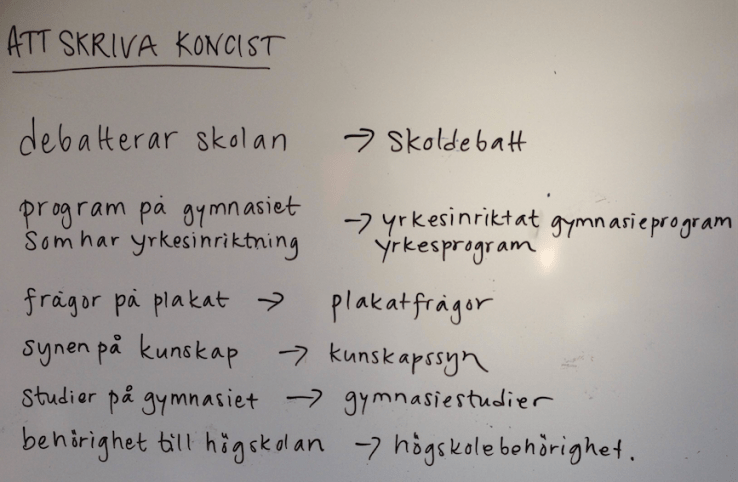 ATT SKRIVA KONCIST
debatterar skolan → skoldebatt
program på gymnasiet → yrkesinriktat gymnasieprogram
som har yrkesinriktning yrkesprogram
frågor på plakat → plakatfrågor
synen på kunskap → kunskapssyn
studier på gymnasiet → gymnasiestudier
behörighet till högskolan → högskolebehörighet.